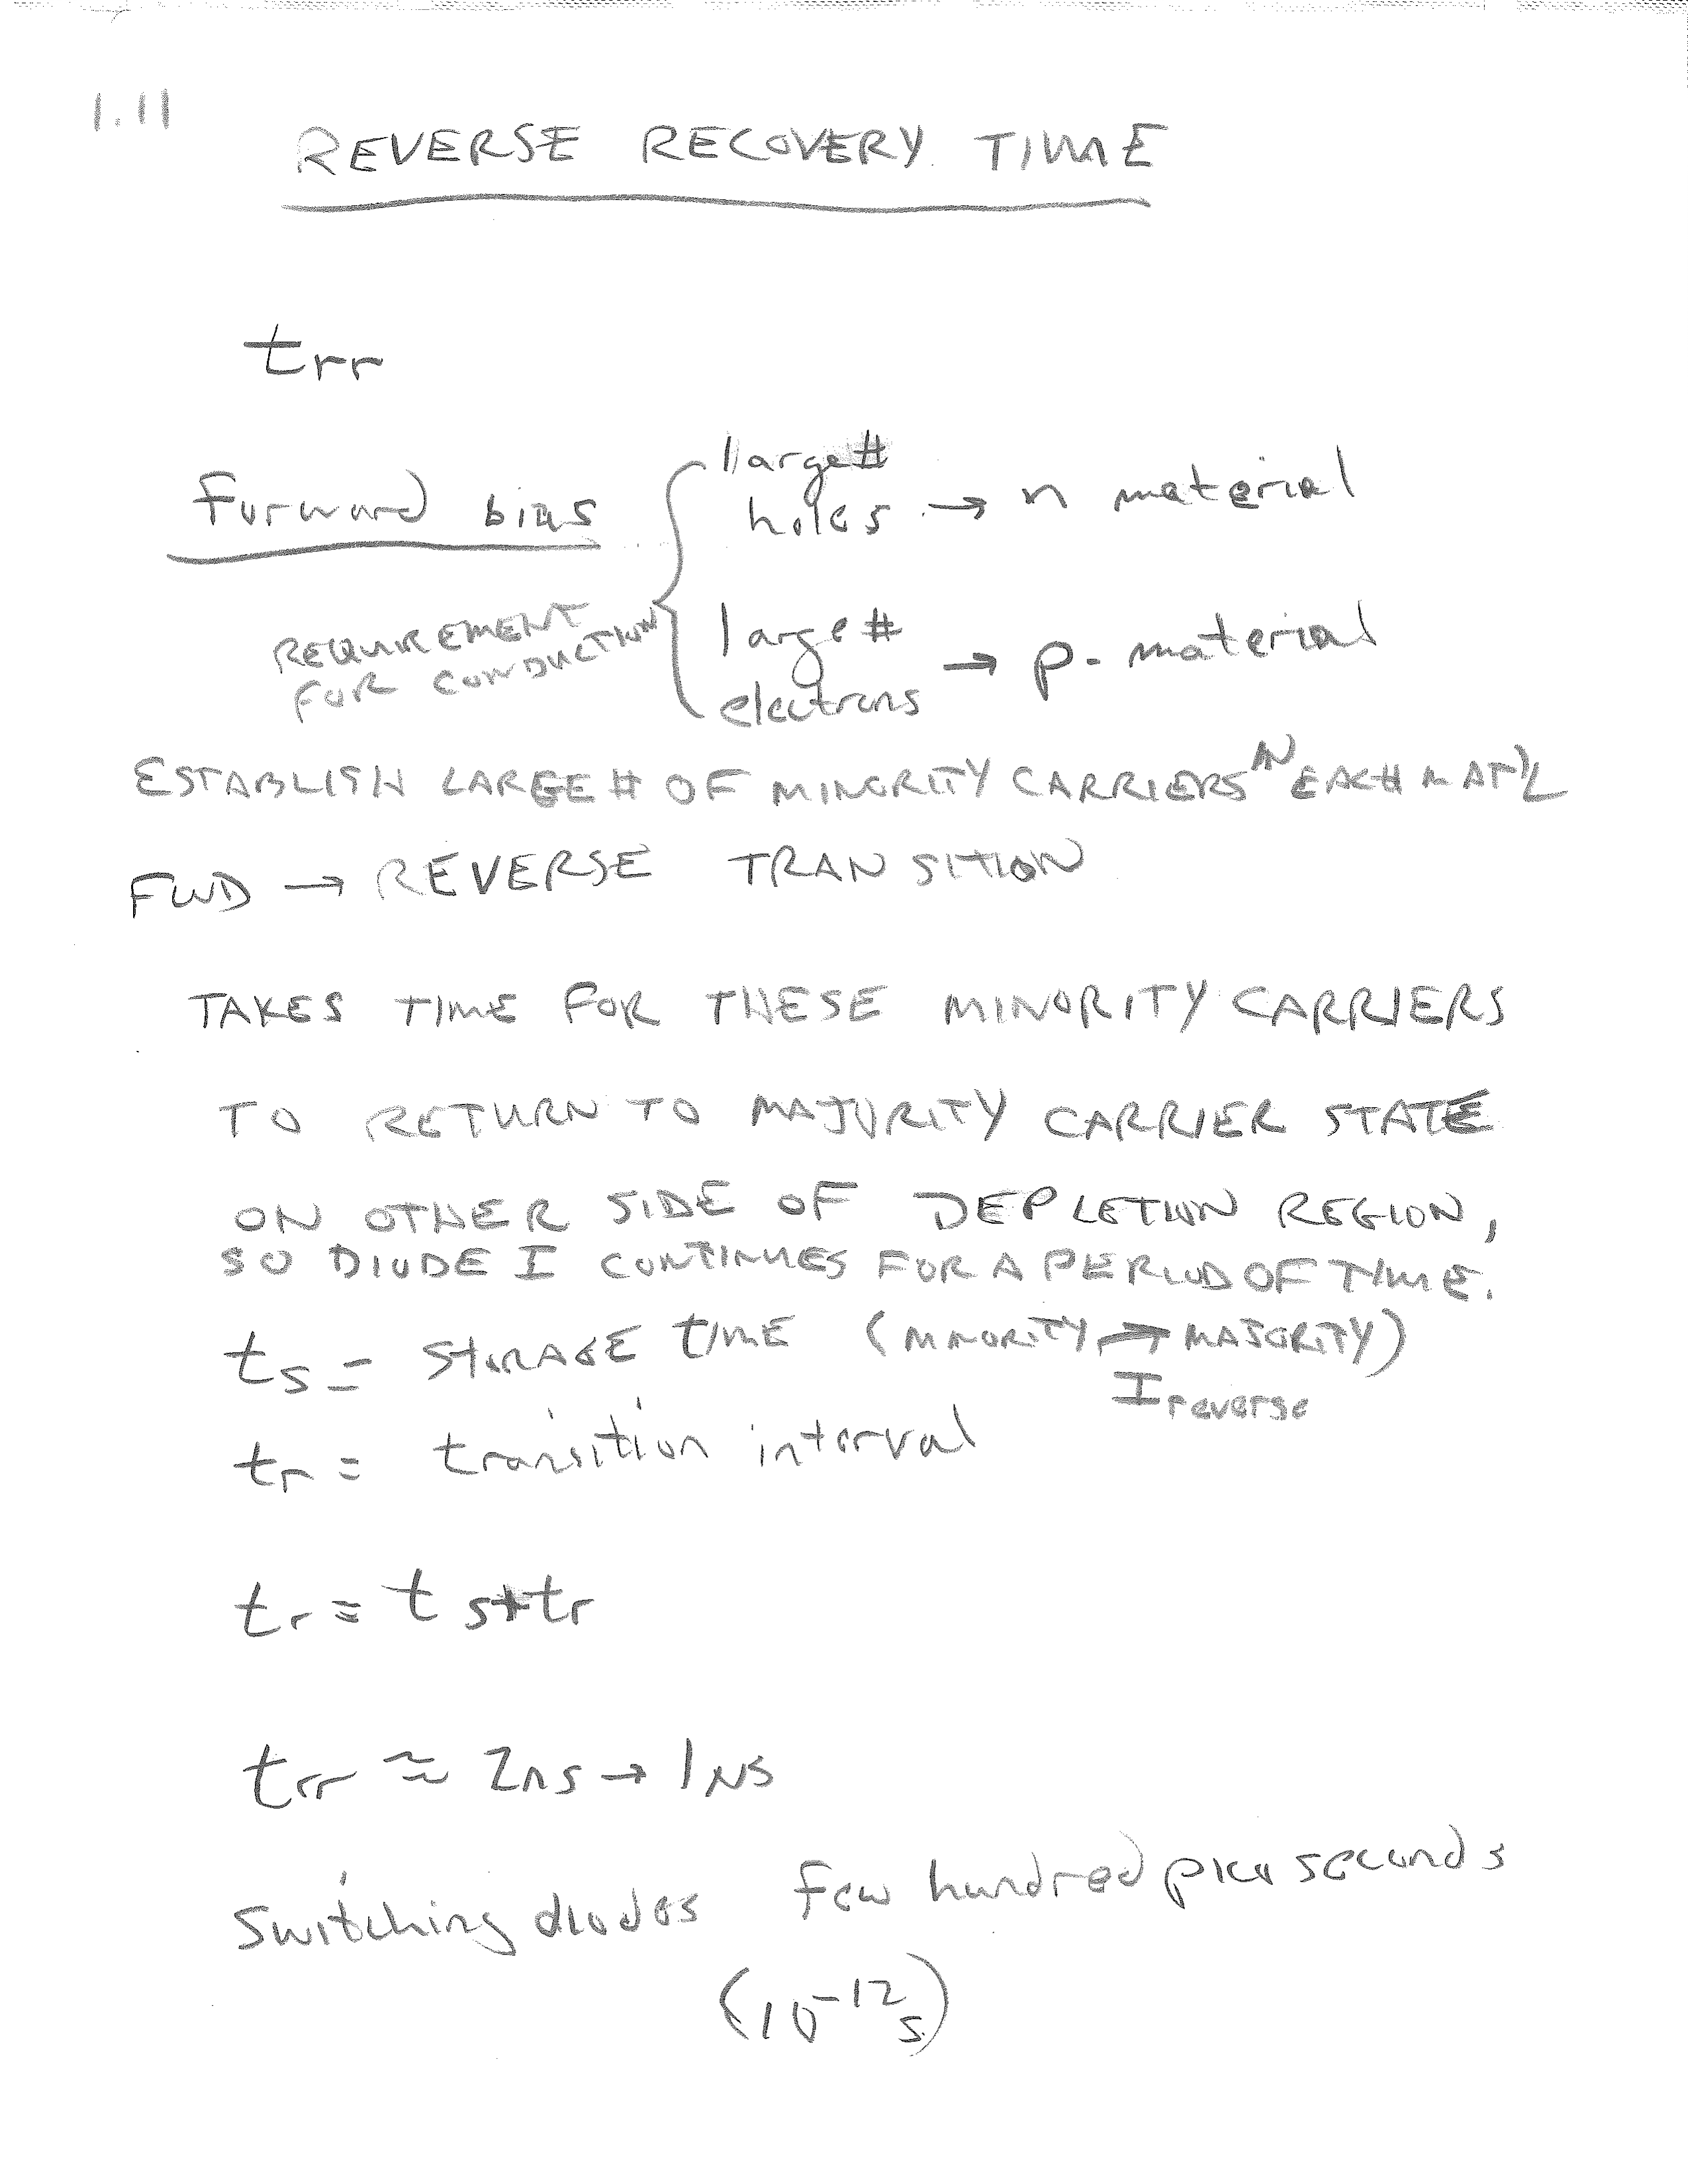 1.11
REVERSE RECOVERY TIME
trr
Forward bias
REQUIREMENT
FOR CONDUCTION
large #
holes → n material
large #
electrons → p- material
ESTABLISH LARGE # OF MINORITY CARRIERS IN EACH MAT'L
FWD → REVERSE TRANSITION
TAKES TIME FOR THESE MINORITY CARRIERS
TO RETURN TO MAJORITY CARRIER STATE
ON OTHER SIDE OF DEPLETION REGION,
SO DIODE I CONTINUES FOR A PERIOD OF TIME.
ts = STORAGE TIME (MINORITY → MAJORITY)
I reverse
tr = transition interval
tr = ts + tr
trr ≈ 2ns → 1µs
Switching diodes few hundred pico seconds
(10^-12 s)